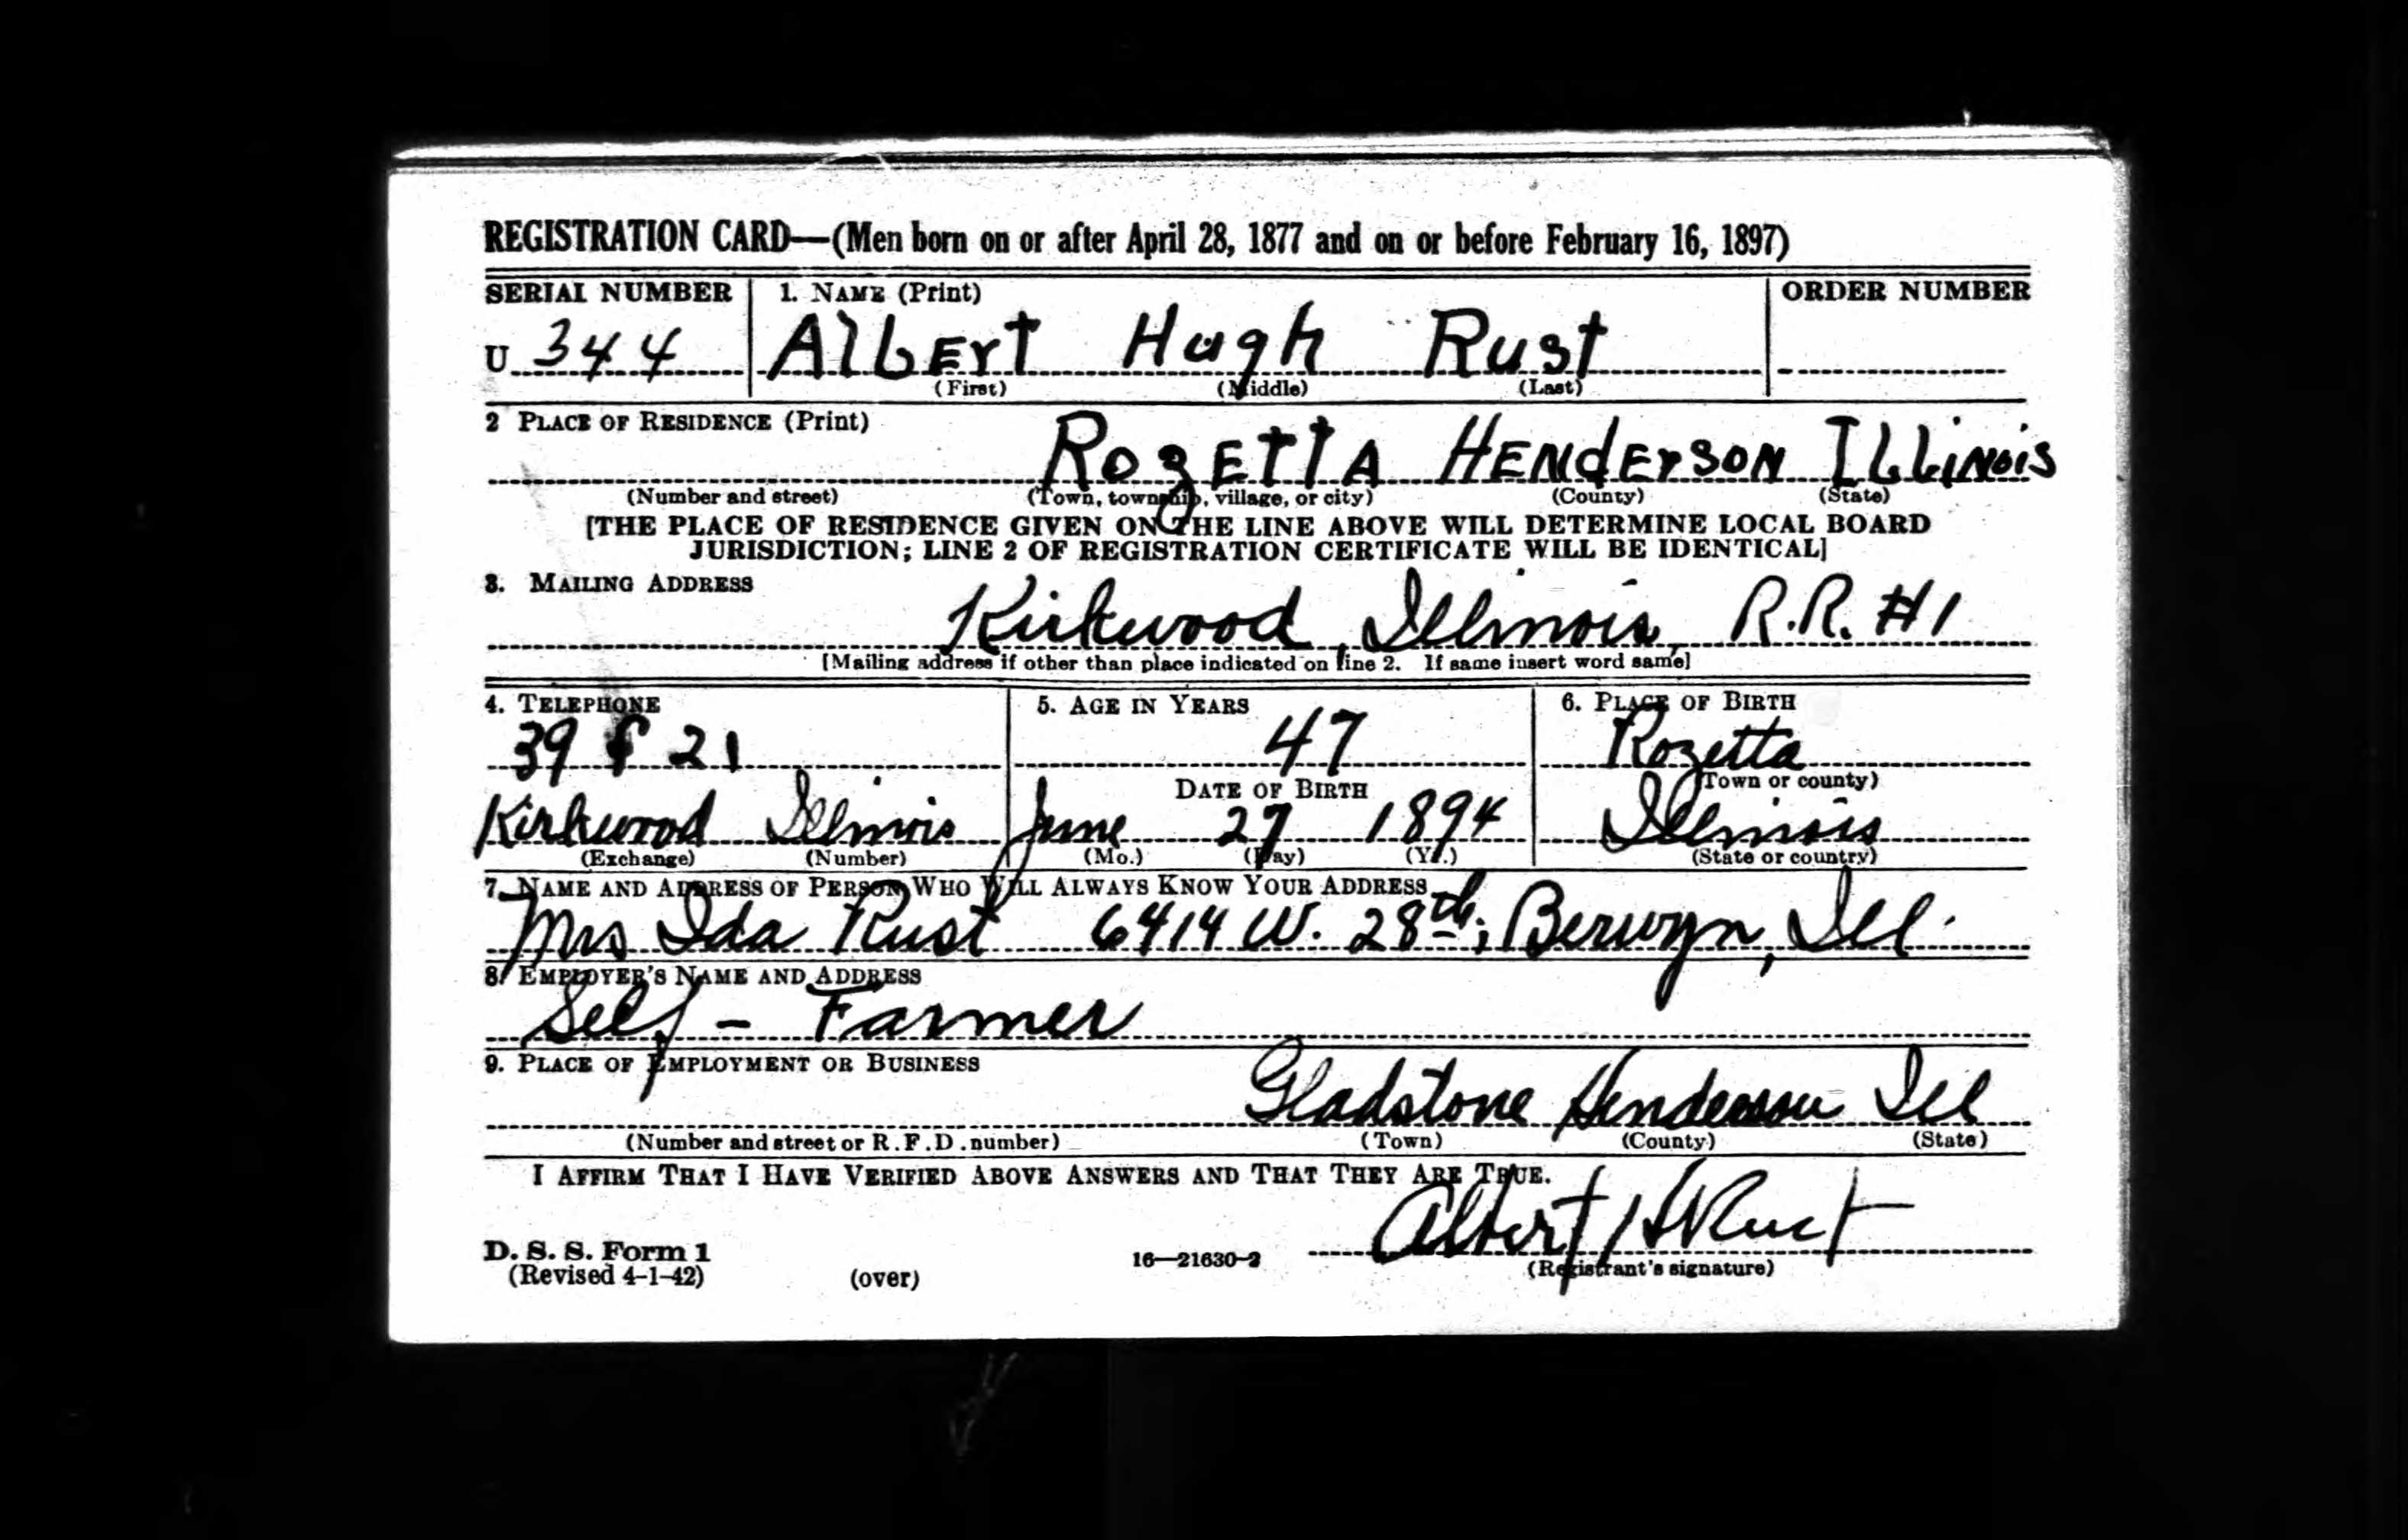 REGISTRATION CARD—(Men born on or after April 28, 1877 and on or before February 16, 1897)
SERIAL NUMBER 1. NAME (Print) ORDER NUMBER
U 344 Albert Hugh Rust
(First) (Middle) (Last)
2 PLACE OF RESIDENCE (Print)
Rozetta Henderson Illinois
(Number and street) (Town, township, village, or city) (County) (State)
[THE PLACE OF RESIDENCE GIVEN ON THE LINE ABOVE WILL DETERMINE LOCAL BOARD
JURISDICTION; LINE 2 OF REGISTRATION CERTIFICATE WILL BE IDENTICAL]
3. MAILING ADDRESS
Kirkwood, Illinois, R.R. #1
[Mailing address if other than place indicated on line 2. If same insert word same]
4. TELEPHONE 5. AGE IN YEARS 6. PLACE OF BIRTH
39 f 21 47 Rozetta
DATE OF BIRTH (Town or county)
Kirkwood Illinois June 27 1894 Illinois
(Exchange) (Number) (Mo.) (Day) (Yr.) (State or country)
7. NAME AND ADDRESS OF PERSON WHO WILL ALWAYS KNOW YOUR ADDRESS
Mrs Ida Rust 6414 W. 28th; Berwyn, Ill.
8. EMPLOYER'S NAME AND ADDRESS
Self - Farmer
9. PLACE OF EMPLOYMENT OR BUSINESS
Gladstone Henderson Ill
(Number and street or R.F.D. number) (Town) (County) (State)
I AFFIRM THAT I HAVE VERIFIED ABOVE ANSWERS AND THAT THEY ARE TRUE.
Albert H Rust
D. S. S. Form 1 16—21630-2 (Registrant's signature)
(Revised 4-1-42) (over)